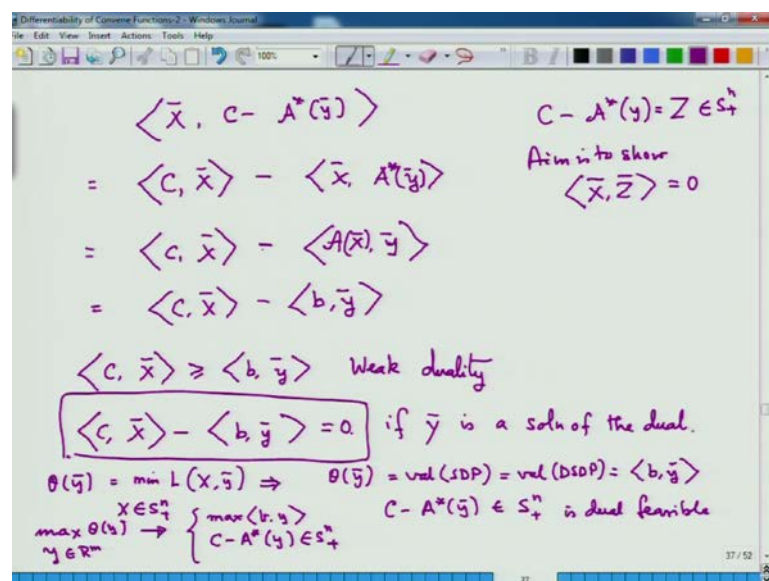 Differentiability of Convene Functions-2 - Windows Journal
File Edit View Insert Actions Tools Help
100%
B I
⟨X̄, C - A*(ȳ)⟩
= ⟨C, X̄⟩ - ⟨X̄, A*(ȳ)⟩
= ⟨C, X̄⟩ - ⟨A(X̄), ȳ⟩
= ⟨C, X̄⟩ - ⟨b, ȳ⟩
C - A*(y) = Z ∈ S₊ⁿ
Aim is to show
⟨X̄, Z̄⟩ = 0
⟨C, X̄⟩ ≥ ⟨b, ȳ⟩ Weak duality
⟨C, X̄⟩ - ⟨b, ȳ⟩ = 0. if ȳ is a soln of the dual.
θ(ȳ) = min L(X, ȳ) ⇒ θ(ȳ) = val(SDP) = val(DSDP) = ⟨b, ȳ⟩
X ∈ S₊ⁿ
C - A*(ȳ) ∈ S₊ⁿ is dual feasible
max θ(y) → { max ⟨b, y⟩
y ∈ Rᵐ C - A*(y) ∈ S₊ⁿ
37 / 52
37